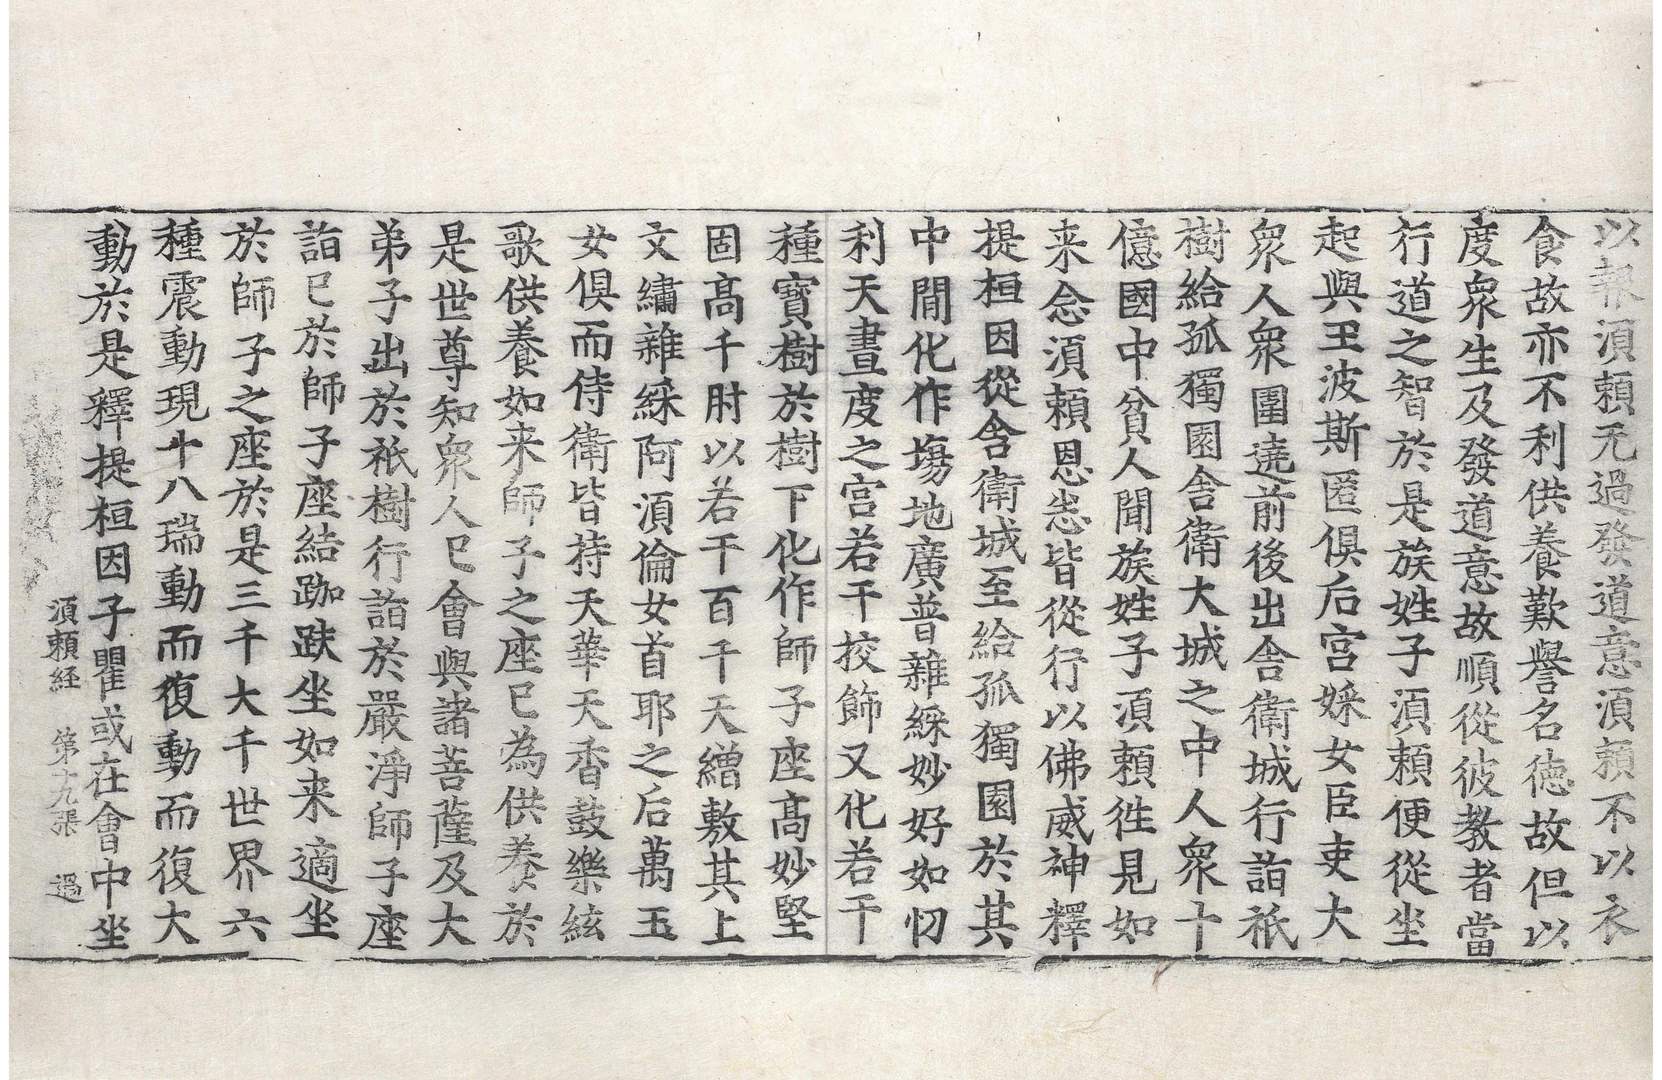 以報湏頼无過發道意湏頼不以衣
食故亦不利供養歎譽名徳故但以
度衆生及發道意故順從彼教者當
行道之智於是族姓子湏頼便從坐
起與王波斯匿俱后宫婇女臣吏大
衆人衆圍遶前後出舎衛城行詣祇
樹給孤獨園舎衛大城之中人衆十
億國中貧人聞族姓子湏頼徃見如
来念湏頼恩悉皆從行以佛威神釋
提桓因從舎衛城至給孤獨園於其
中間化作塲地廣普雜綵妙好如忉
利天晝度之宫若干挍飾又化若干
種寶樹於樹下化作師子座髙妙堅
固髙千肘以若干百千天繒敷其上
文繡雜綵阿湏倫女首耶之后萬玉
女俱而侍衛皆持天華天香鼓樂絃
歌供養如来師子之座已為供養於
是世尊知衆人已會與諸菩薩及大
弟子出於祇樹行詣於嚴淨師子座
詣已於師子座結跏趺坐如来適坐
於師子之座於是三千大千世界六
種震動現十八瑞動而復動而復大
動於是釋提桓因子瞿或在會中坐
湏頼経　第十九張　過